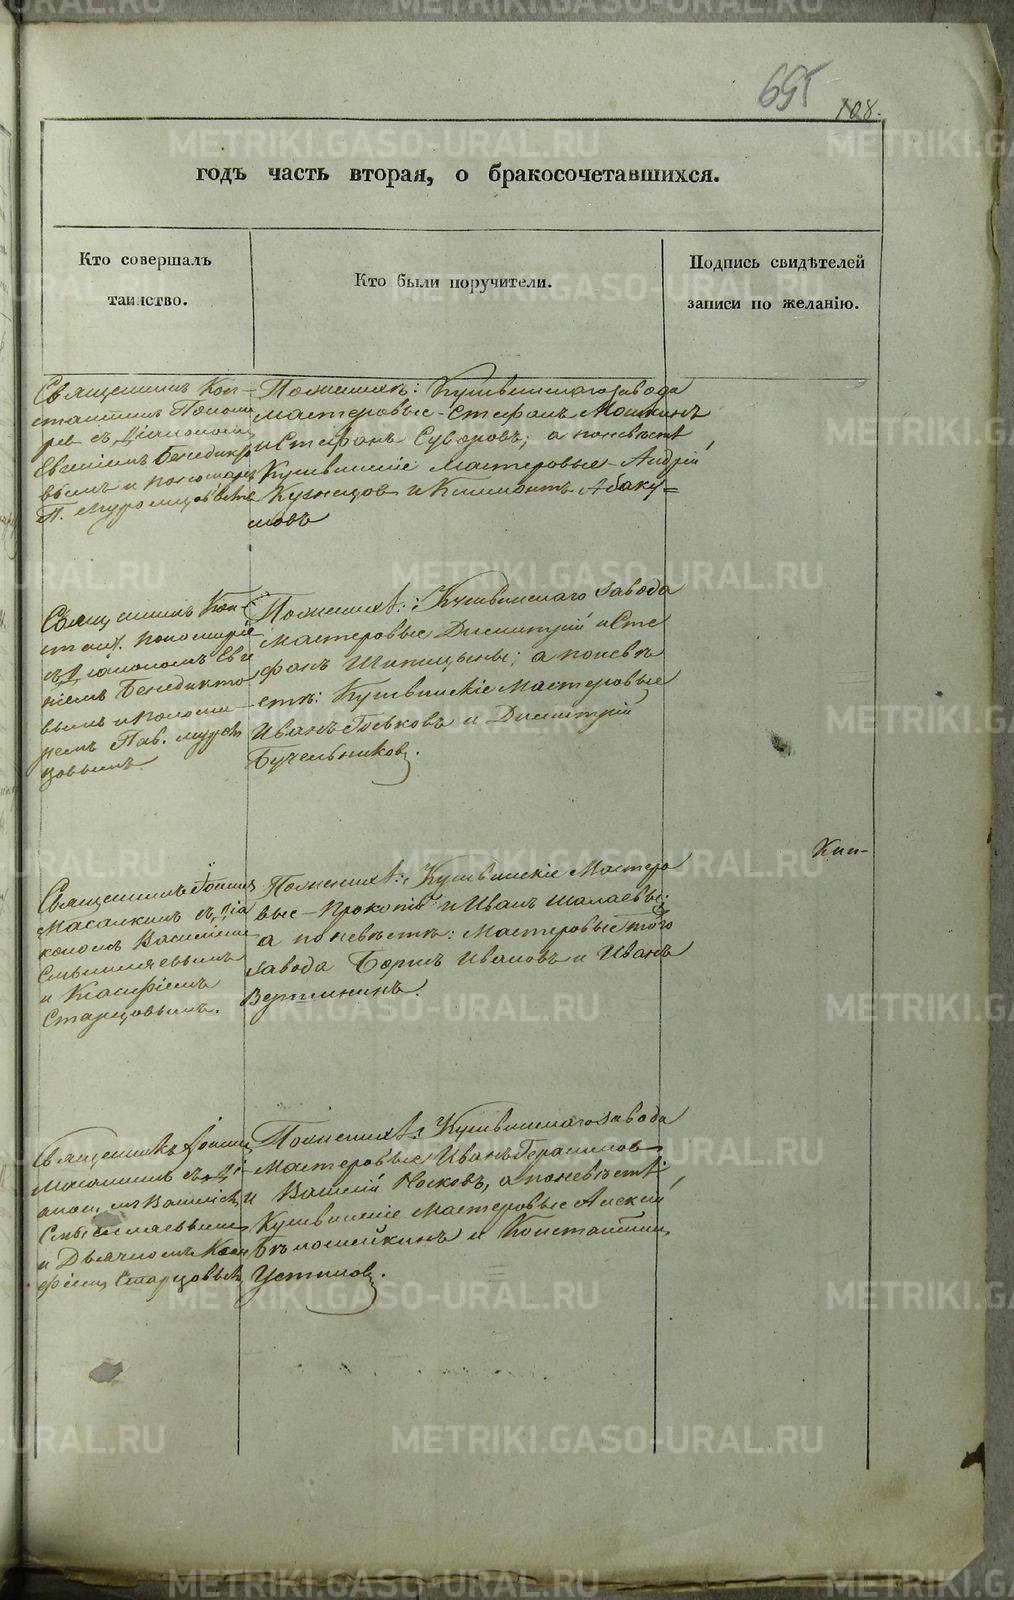 695
108.
годъ часть вторая, о бракосочетавшихся.
Кто совершалъ
таинство.
Кто были поручители.
Подпись свидѣтелей
записи по желанію.
Священникъ Кон-
стантинъ Пономa
рев съ Діакономъ
Евгеніемъ Бенедикто
вымъ и пономаремъ
П. Муромцовымъ
По женихѣ: Кушвинскаго завода
мастеровые - Стефанъ Мошкинъ
и Стефанъ Суворовъ; а по невѣстѣ
Кушвинскіе мастеровые - Андрей
Кузнецов и Климонтъ Абаку=
мовъ
Священникъ Кон-
стант. Пономарев
съ Діакономъ Евге
ніемъ Бенедикто
вымъ и понома
ремъ Пав. Муром
цовымъ.
По женихѣ: Кушвинскаго завода
мастеровые Димитрій и Сте
фанъ Шипицыны; а по невѣ
стѣ: Кушвинскіе мастеровые
Иванъ Гоcьковъ и Димитрій
Бучельниковъ.
Священникъ Іоаннъ
Масалкинъ съ Діа
кономъ Василіемъ
Смышляевымъ
и
Старцовымъ.
По женихѣ: Кушвинскіе Мастеро
вые - Прокопій и Иванъ Шалаевы;
а по невѣстѣ: мастеровые того
завода Борисъ Ивановъ и Иванъ
Вершининъ.
Кли-
Священникъ Іоаннъ
съ Ді
акономъ Василіемъ
Смышляевымъ
и Дьячкомъ
Старцовымъ
По женихѣ: Кушвинскаго завода
Мастеровые Иванъ Герасимовъ
и Василій Носковъ, а по невѣстѣ
Кушвинскіе мастеровые Алексѣй
Бѣлошейкинъ и Константинъ
Устинов.
METRIKI.GASO-URAL.RU